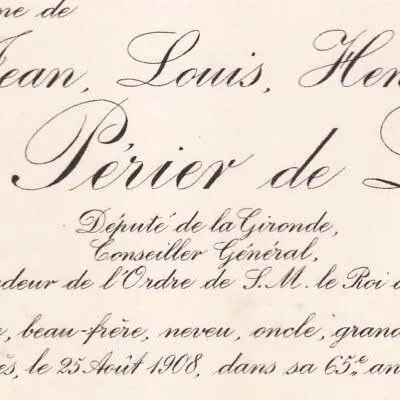 me de
Jean, Louis, Hen
Périer de L
Député de la Gironde,
Conseiller Général,
ndeur de l'Ordre de S. M. le Roi d
e, beau-frère, neveu, oncle, grand
és, le 25 Août 1908, dans sa 65.e an